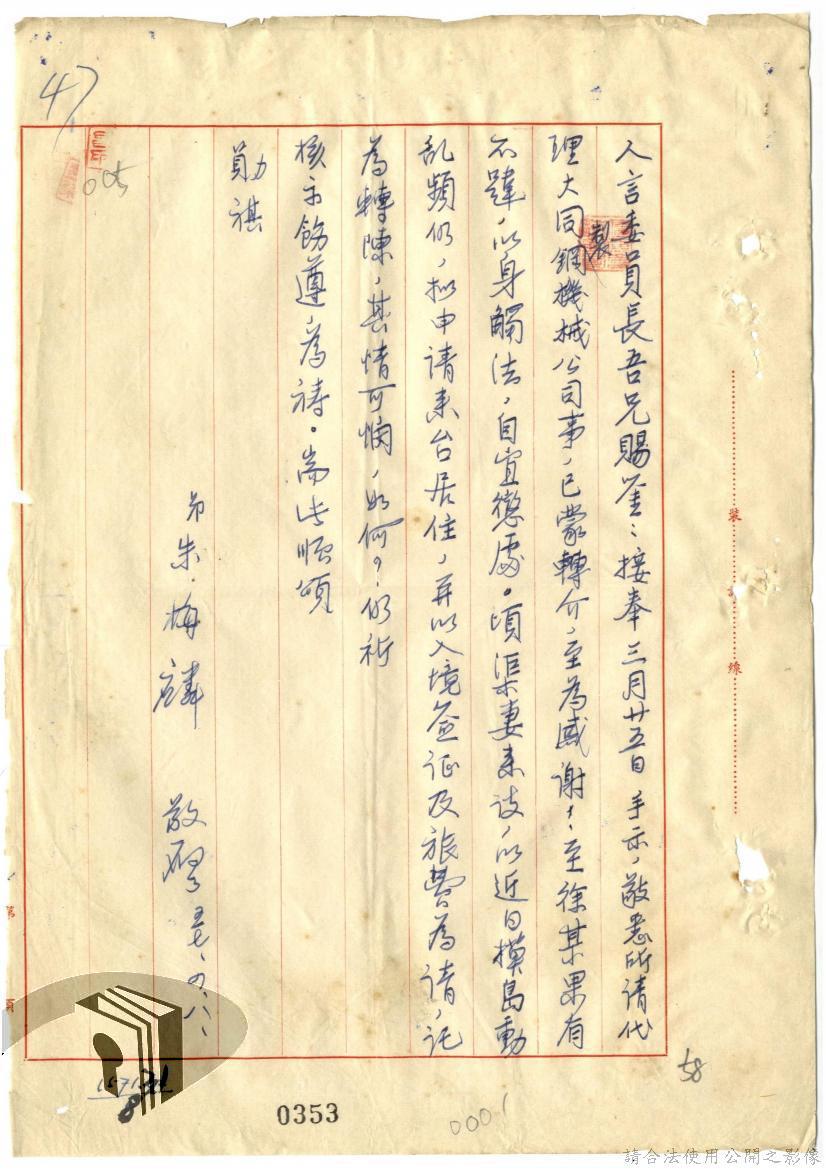 47
人言委員長吾兄賜鑒：接奉三月廿五日 手示，敬悉所請代
理大同鋼製機械公司事，已蒙轉介，至為感謝！至徐某果有
不韙，以身觸法，自宜懲處。頃渠妻來談，以近日模島動
乱頻仍，拟申请來台居住，并以入境簽证及旅費為请，託
為轉陳，其情可憫，如何？仍祈
核示飭遵，為禱。耑此順頌
勛祺
弟朱梅麟 敬啓 五七、四、八、
005
裝
線
第
頁
58
8
0353
0001
請合法使用公開之影像